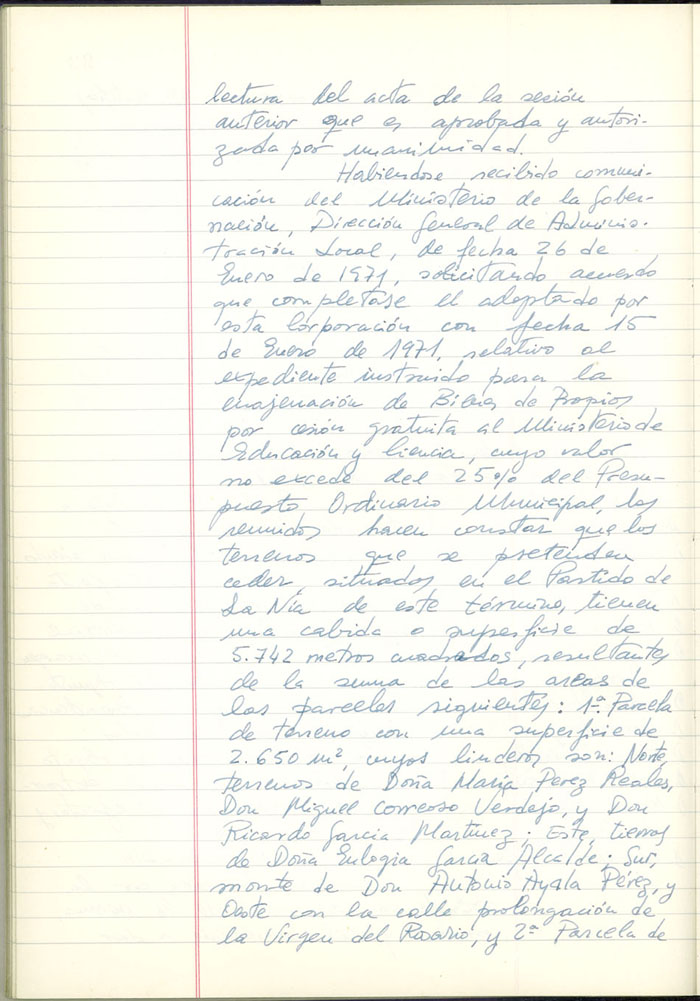 lectura del acta de la sesión
anterior que es aprobada y autori-
zada por unanimidad.
Habiendose recibido comuni-
cación del Ministerio de la Gober-
nación, Dirección General de Adminis-
tración Local, de fecha 26 de
Enero de 1971, solicitando acuerdo
que completase el adoptado por
esta Corporación con fecha 15
de Enero de 1971, relativo al
expediente instruido para la
enajenación de Bienes de Propios
por cesión gratuita al Ministerio de
Educación y Ciencia, cuyo valor
no excede del 25% del Presu-
puesto Ordinario Municipal, los
reunidos hacen constar que los
terrenos que se pretenden
ceder, situados en el Partido de
La Ñia de este término, tienen
una cabida o superficie de
5.742 metros cuadrados, resultantes
de la suma de las areas de
las parcelas siguientes: 1ª Parcela
de terreno con una superficie de
2.650 m², cuyos linderos son: Norte,
terrenos de Doña María Perez Reales,
Don Miguel Correoso Verdejo, y Don
Ricardo Garcia Martinez; Este, tierras
de Doña Eulogia Garcia Alcalde; Sur,
monte de Don Antonio Ayala Pérez, y
Oeste con la calle prolongación de
la Virgen del Rosario, y 2ª Parcela de